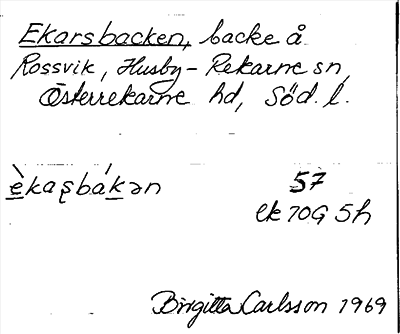 Ekarsbacken, backe å
Rossvik, Husby-Rekarne sn,
Österrekarne hd, Söd. l.
è̱kaʂbáḵən
57
ek 10G 5h
Birgitta Carlsson 1969